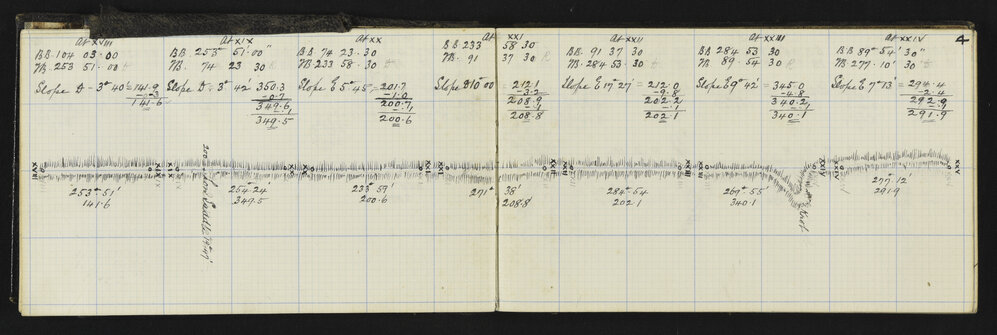 4
At XVIII
BB. 104 03.00
FB. 253 51.00
Slope D - 3° 40' = 141.9
- .3
141.6
At XIX
BB. 253° 51'.00"
FB. 74 23 30 R
Slope D. 3° 42' 350.3
- 0.7
349.6
.1
349.5
At XX
BB 74 23.30
FB 233 58.30
Slope E 5° 45' = 201.7
- 1.0
200.7
.1
200.6
At XXI
BB 233 58 30
FB. 91 37 30 R
Slope 10 00 212.1
- 3.2
208.9
.1
208.8
At XXII
BB. 91 37 30
FB. 284 53.30
Slope E 17° 27' = 212.0
- 9.8
202.2
- .1
202.1
At XXIII
BB 284 53 30
FB 89.54 30 R
Slope E 9° 42' = 345.0
- 4.8
340.2
.1
340.1
At XXIV
BB 89° 54' 30"
FB. 277.10' 30
Slope E 7° 13' = 294.4
- 2.4
292.0
.1
291.9
XVIII
XIX
XIX
XX
XX
XXI
XXI
XXII
XXII
XXIII
XXIII
XXIV
XXIV
XXV
253° 51'
141.6
200 Low Saddle
254.24'
349.5
233° 59'
200.6
271° 38'
208.8'
284°54
202.1
269° 55'
340.1
Knob
277.12'
291.9